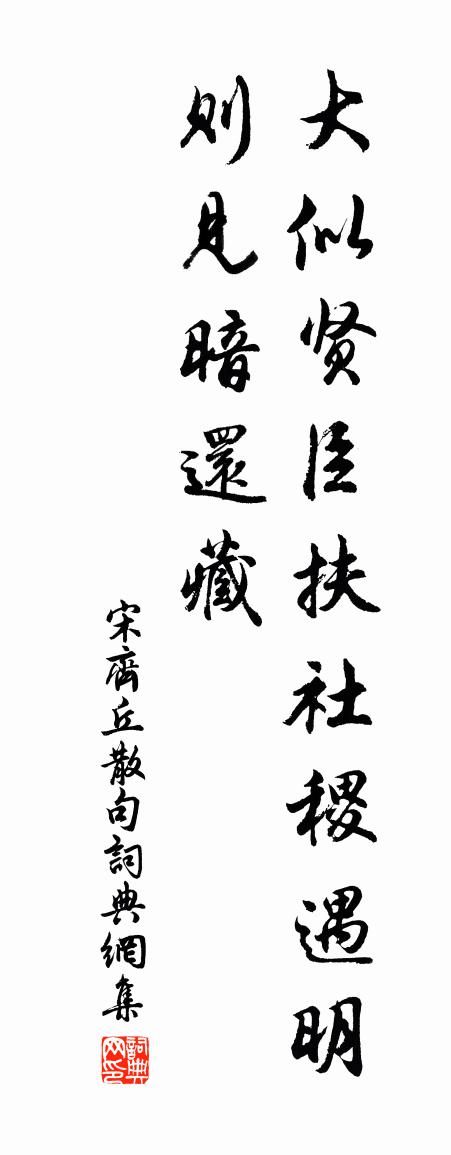 大似贤臣扶社稷遇明
则见暗還藏
宋齊丘散句詞典網集
詞典网印